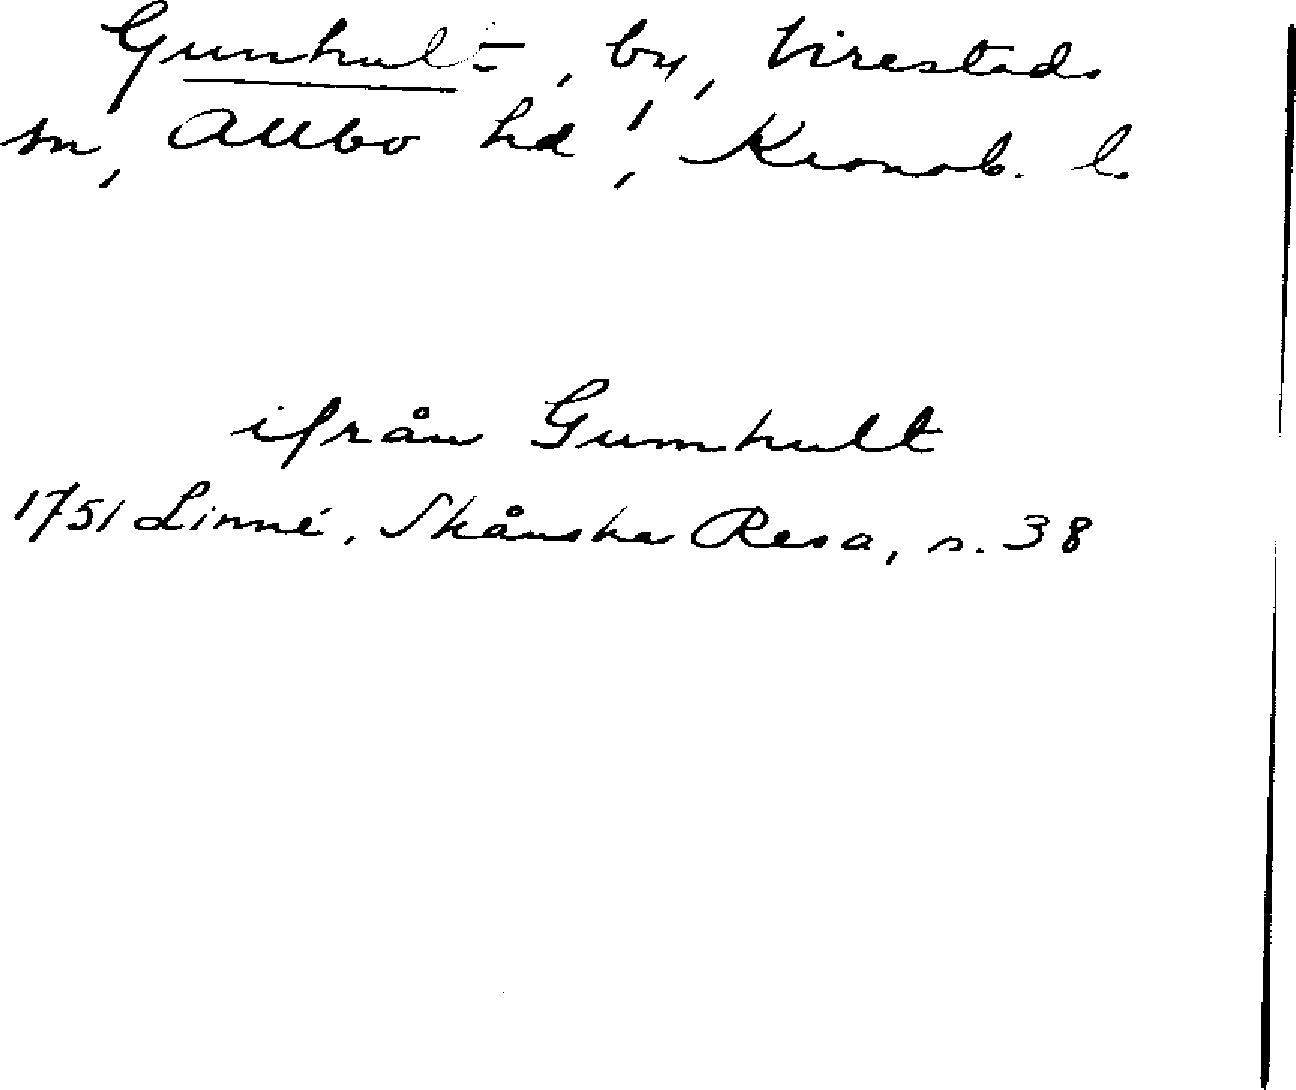 Gunhult, by, Virestads
sn, Allbo hd, Kronob. l.
ifrån Gumhult
1751 Linné, Skånska Resa, s. 38